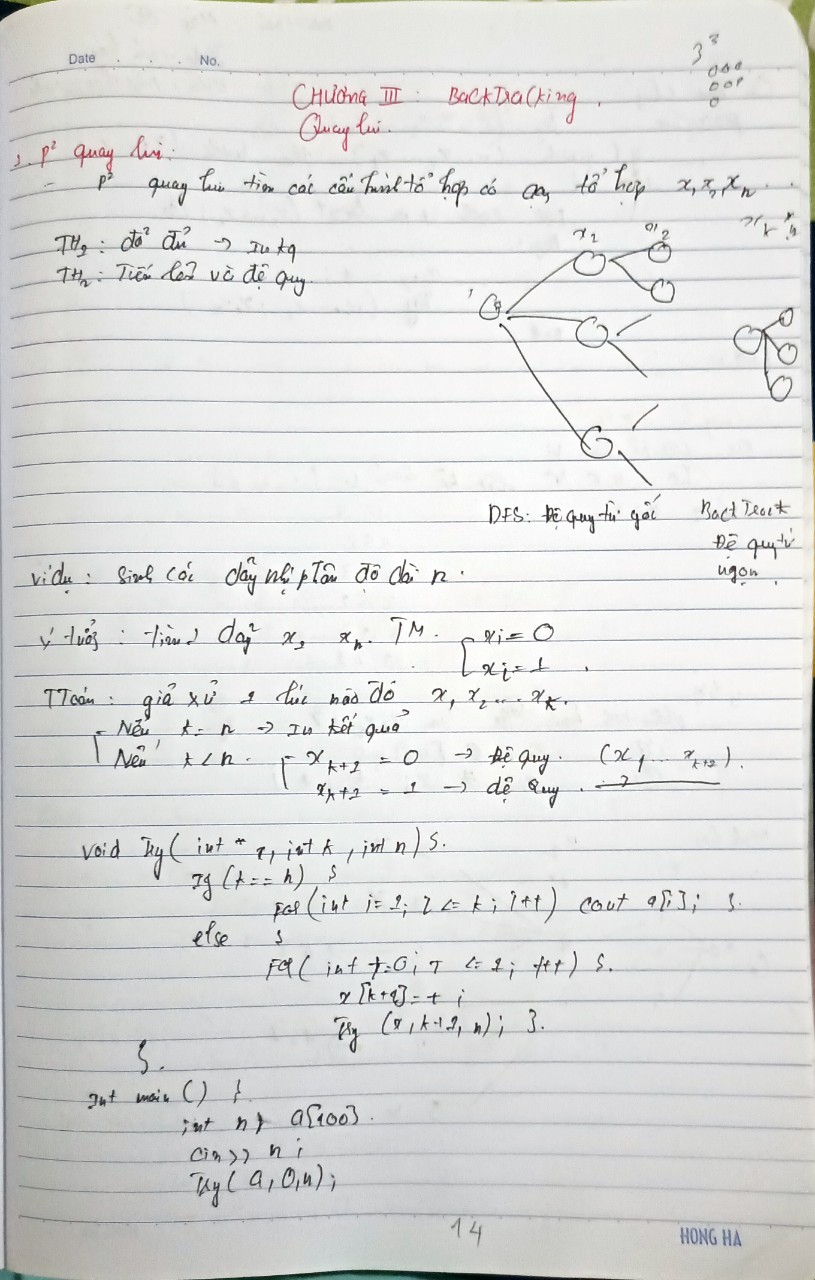 Date . . . No.
3³
000
00
0
CHƯƠNG III : BackTracking .
Quay lui.
1. P² quay lui:
- P² quay lui tìm các cấu hình tổ hợp có dạng tổ hợp x₁ x₂ xₙ .
TH₁: đã đủ → In kq
TH₂: Tiến lên và đệ quy.
x₁
DFS: Đệ quy từ gốc
BackTrack
Đệ quy từ
ngọn .
Ví dụ : Sinh các dãy nhị phân độ dài n .
Ý tưởng : tìm dãy x₁ xₙ. TM . [ xi = 0
xi = 1 .
TToán : giả xử 1 lúc nào đó x₁ x₂ ... xₖ.
Nếu k = n → In kết quả
Nếu k < n . xₖ₊₁ = 0 → Đệ quy . (x₁ ... xₖ₊₁) .
xₖ₊₁ = 1 → đệ quy .
void Try( int * x, int k , int n) {.
If (k == n) {
For (int i = 1; i <= k ; i++) cout a[i]; }.
else {
For ( int t=0; t <= 1 ; t++) {.
x [k+1] = t ;
Try (x, k+1, n) ; }.
}.
Int main () {
int n, a[100] .
cin >> n ;
Try ( a, 0, n) ;
14
HONG HA